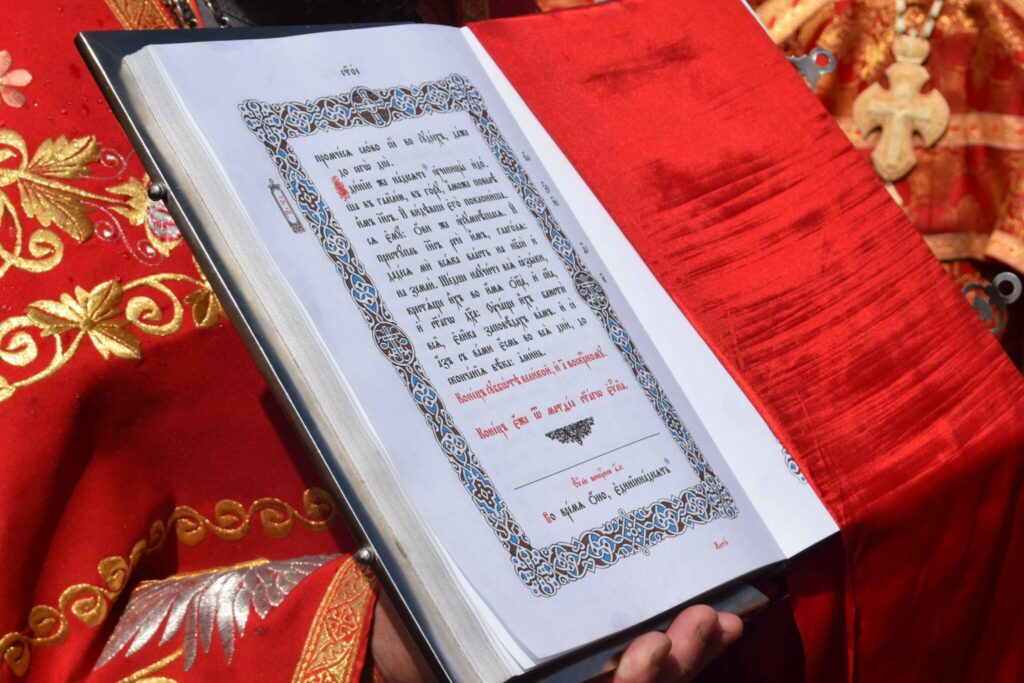 промчесѧ сло́во сїѐ во і҆ꙋде́ехъ, да́же
до
днѐ.
Є҆ди́нїи же на́десѧть ᲂу҆ченицы̀ и҆до́-
ша въ галїле́ю, въ го́рꙋ, а҆́може повелѣ̀
и҆̀мъ і҆и҃съ. И҆ ви́дѣвше є҆го̀ поклони́ша-
сѧ є҆мꙋ̀: Ѻ҆́ви же ᲂу҆сꙋмнѣ́шасѧ. И҆
пристꙋ́пль і҆и҃съ речѐ и҆̀мъ, глаго́лѧ:
даде́сѧ мѝ всѧ́ка вла́сть на нб҃сѝ и҆
на землѝ. Ше́дше наꙋчи́те всѧ̑ ꙗ҆зы́ки,
крⷭ҇тѧ́ще и҆̀хъ во и҆́мѧ Ѻ҆ц҃а̀, и҆ сн҃а,
и҆ ст҃а́гѡ дх҃а: Оу҆ча́ще и҆̀хъ блюстѝ
всѧ̑, є҆ли̑ка заповѣ́дахъ ва́мъ. и҆ сѐ
а҆́зъ съ ва́ми є҆́смь во всѧ̑ дни̑, до
сконча́нїѧ вѣ́ка: а҆ми́нь.
Коне́цъ сꙋббѡ́тѣ вели́кой, и҆ а҃ воскрⷭ҇номꙋ.
Коне́цъ є҆́же ѿ матѳе́а ст҃а́гѡ є҆ѵⷢ҇лїа.
Во вре́мѧ Ѻ҆́но, є҆ди́нїинадесѧть